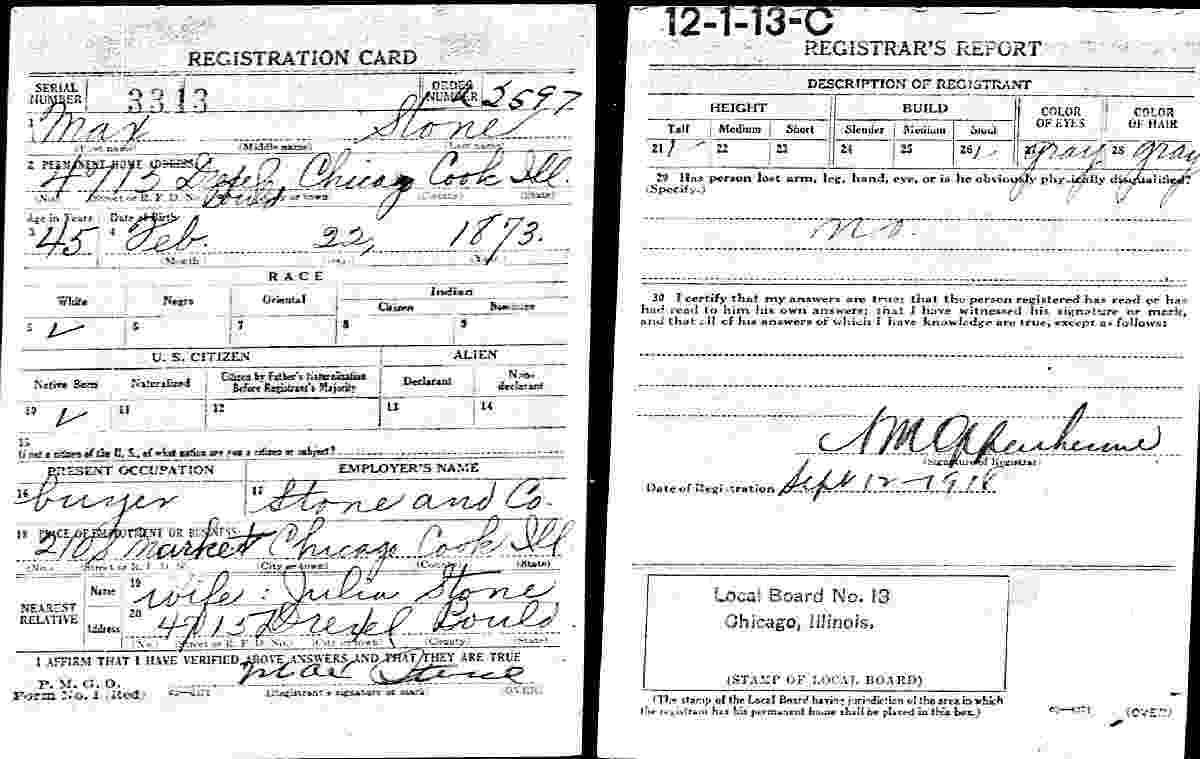 REGISTRATION CARD
SERIAL NUMBER 3313 ORDER NUMBER 3597
1 Max Stone
(First name) (Middle name) (Last name)
2 PERMANENT HOME ADDRESS
4715 Drexel Boul Chicago Cook Ill.
(No.) (Street or R. F. D. No.) (City or town) (County) (State)
Age in Years Date of Birth
3 45 4 Feb. 22, 1873.
(Month) (Day) (Year)
RACE
White Negro Oriental Indian
Citizen Noncitizen
5 ✓ 6 7 8 9
U. S. CITIZEN ALIEN
Native Born Naturalized Citizen by Father's Naturalization Before Registrant's Majority Declarant Non-declarant
10 ✓ 11 12 13 14
15
If not a citizen of the U. S., of what nation are you a citizen or subject?
PRESENT OCCUPATION EMPLOYER'S NAME
16 buyer 17 Stone and Co.
18 PLACE OF EMPLOYMENT OR BUSINESS
210 S Market Chicago Cook Ill
(No.) (Street or R. F. D. No.) (City or town) (County) (State)
NEAREST RELATIVE
Name 19 wife: Julia Stone
Address 20 4715 Drexel Bould.
(No.) (Street or R. F. D. No.) (City or town) (County) (State)
I AFFIRM THAT I HAVE VERIFIED ABOVE ANSWERS AND THAT THEY ARE TRUE
P. M. G. O.
Form No. 1 (Red) Max Stone
(Registrant's signature or mark) (OVER)
12-1-13-C
REGISTRAR'S REPORT
DESCRIPTION OF REGISTRANT
HEIGHT BUILD COLOR OF EYES COLOR OF HAIR
Tall Medium Short Slender Medium Stout
21 / 22 23 24 25 26 / 27 Gray 28 Gray
29 Has person lost arm, leg, hand, eye, or is he obviously physically disqualified?
(Specify.)
no.
30 I certify that my answers are true; that the person registered has read or has
had read to him his own answers; that I have witnessed his signature or mark,
and that all of his answers of which I have knowledge are true, except as follows:
(Signature of Registrar)
Date of Registration Sept 12-1918
Local Board No. 13
Chicago, Illinois.
(STAMP OF LOCAL BOARD)
(The stamp of the Local Board having jurisdiction of the area in which
the registrant has his permanent home shall be placed in this box.)
(OVER)